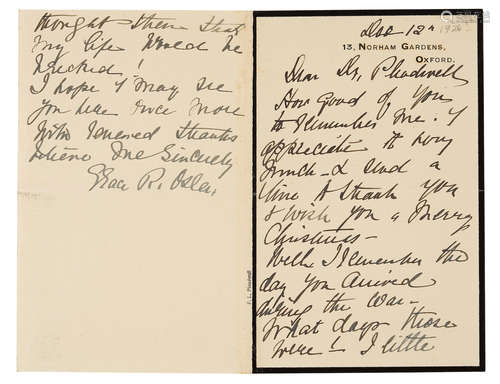 Dec 12th 1926
13, NORHAM GARDENS,
OXFORD.
Dear Dr.
How Good of you
to remember me. I
appreciate it very
much & send a
line to thank you
& wish you a Merry
Christmas –
Well I remember the
day you arrived
during the War –
What days those
were! – I little
thought then that
my life would be
wrecked!
I hope I may see
you here once more
With renewed thanks
believe me sincerely
Grace R. Osler.